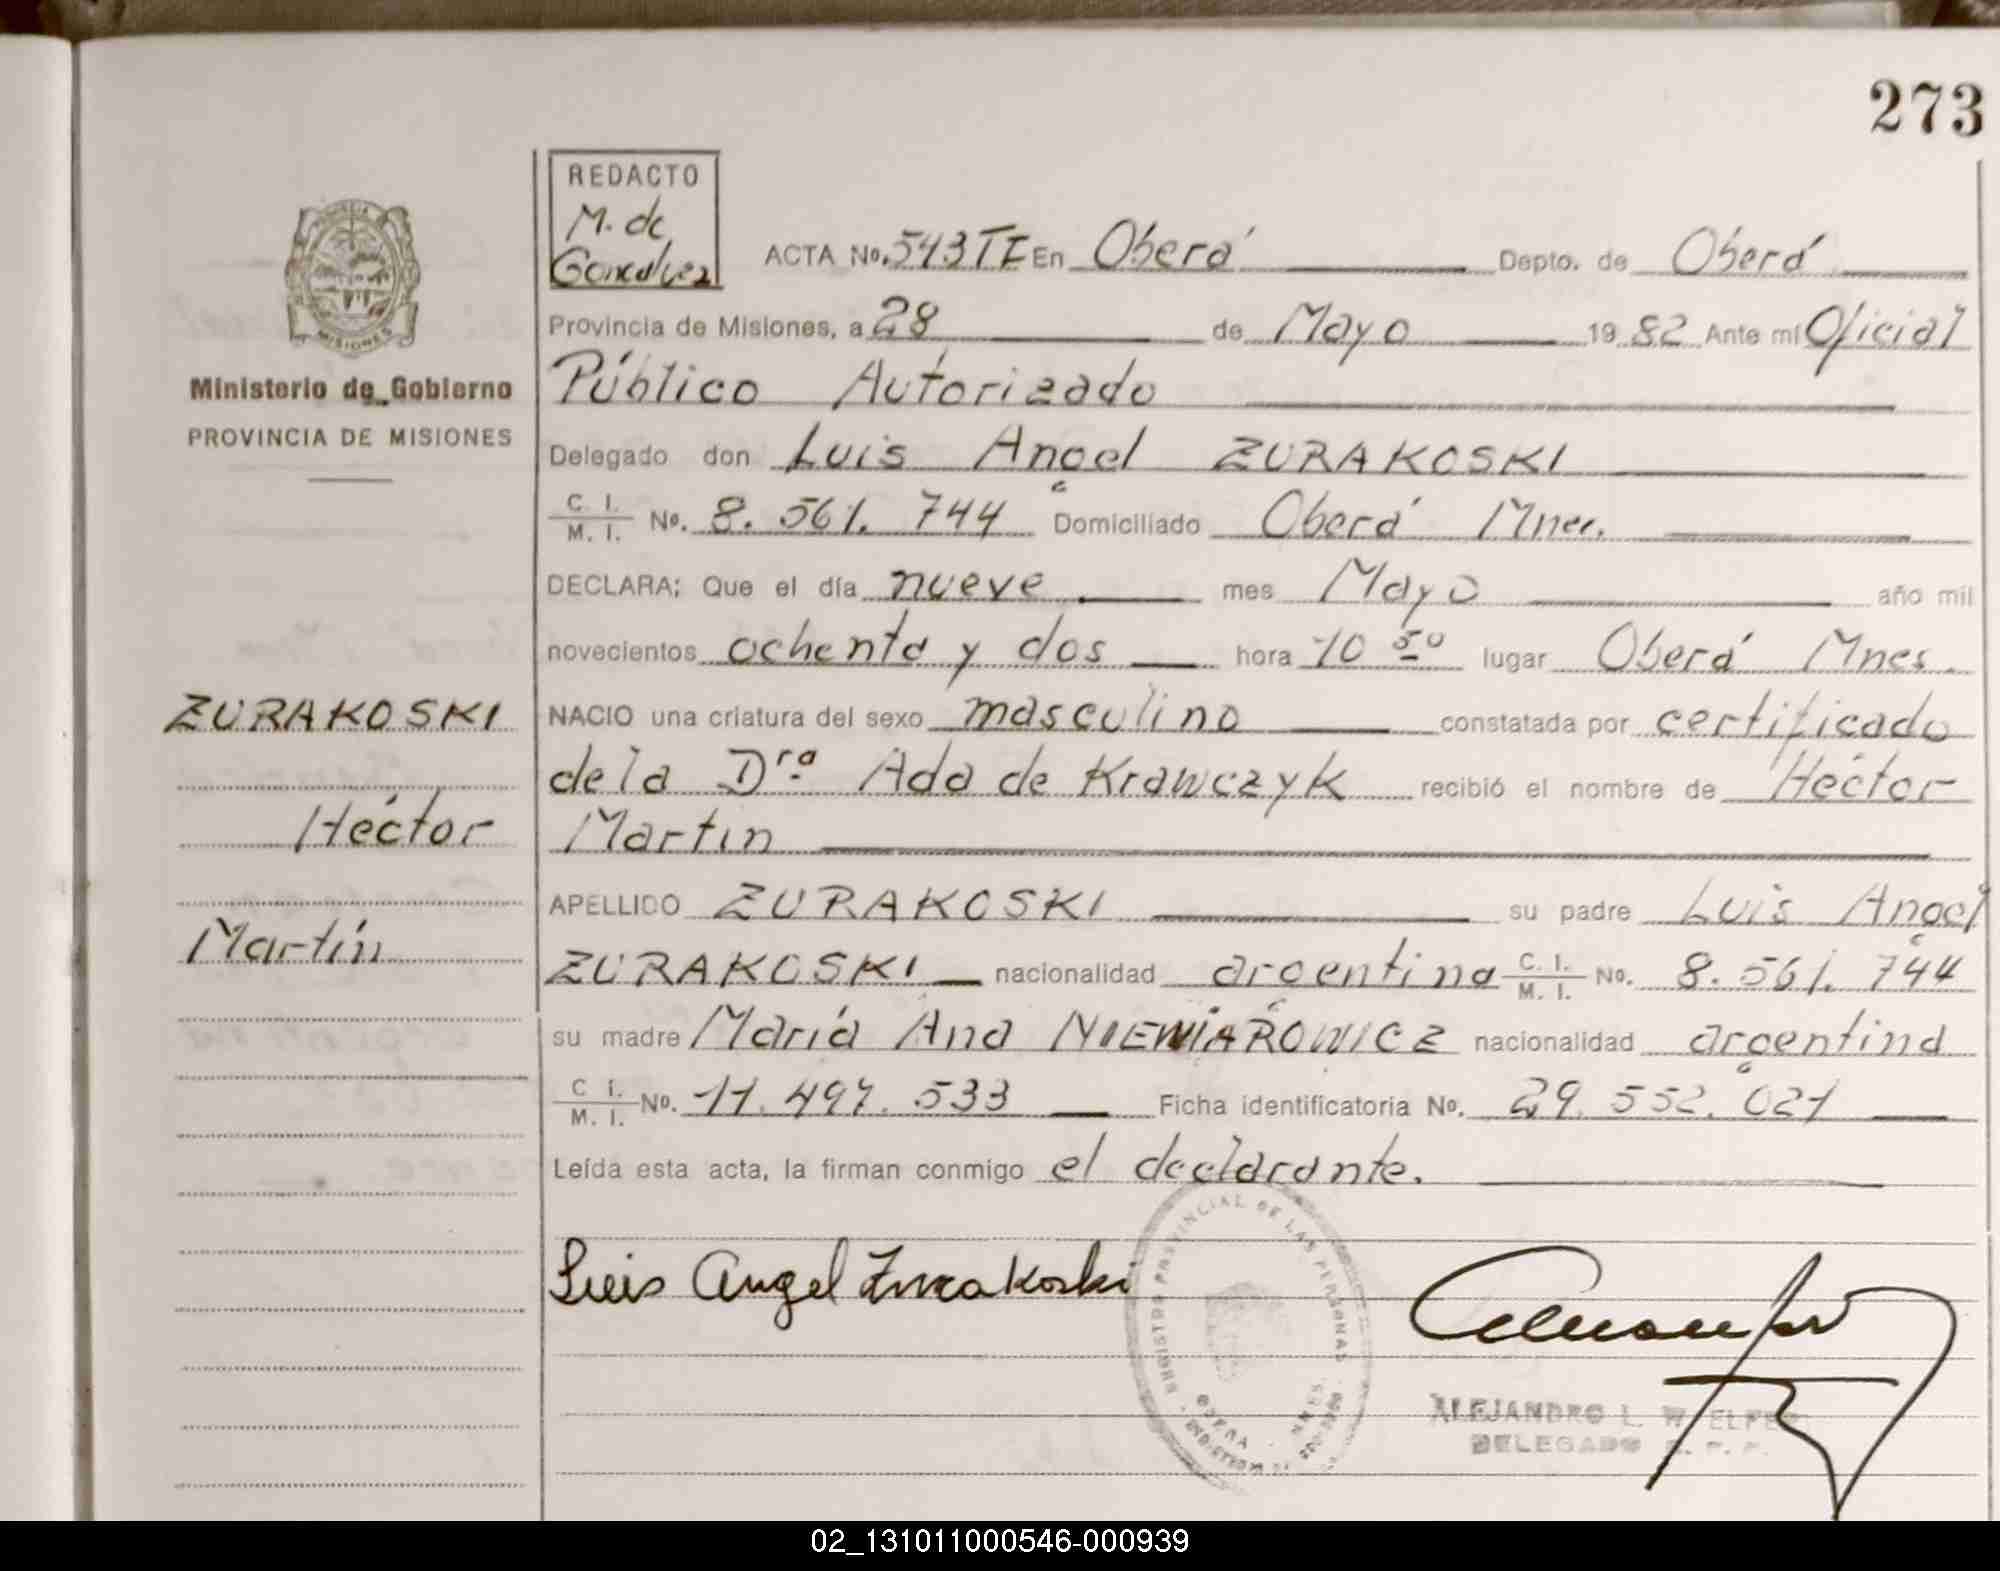 273
REDACTO
M. de
Goncalvez
ACTA No. 543 TI En Oberá Depto. de Oberá
Provincia de Misiones, a 28 de Mayo 1982 Ante mí Oficial
Público Autorizado
Delegado don Luis Angel ZURAKOSKI
C. I.
M. I. No. 8.561.744 Domiciliado Oberá Mnes.
DECLARA: Que el día nueve mes Mayo año mil
novecientos ochenta y dos hora 10 30 lugar Oberá Mnes.
NACIO una criatura del sexo masculino constatada por certificado
de la Dra. Ada de Krawczyk recibió el nombre de Héctor
Martin
APELLIDO ZURAKOSKI su padre Luis Angel
ZURAKOSKI nacionalidad argentina C. I. M. I. No. 8.561.744
su madre María Ana NIEWIAROWICZ nacionalidad argentina
C. I.
M. I. No. 11.497.533 Ficha identificatoria No. 29.552.021
Leída esta acta, la firman conmigo el declarante.
Luis Angel Zurakoski
PROVINCIA
MISIONES
Ministerio de Gobierno
PROVINCIA DE MISIONES
ZURAKOSKI
Héctor
Martín
REGISTRO PROVINCIAL DE LAS PERSONAS
OBERA - MNES.
ALEJANDRO L.
DELEGADO
02_131011000546-000939